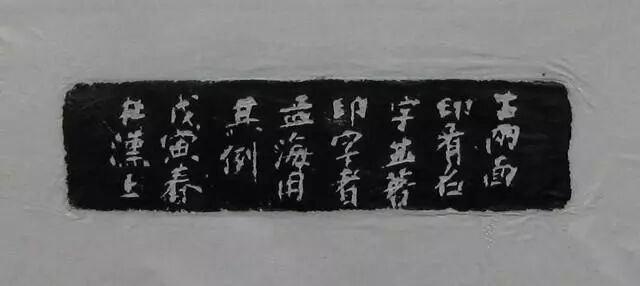 古兩面
印有
字並著
印字者
孟海用
其例
戊寅春
漢上